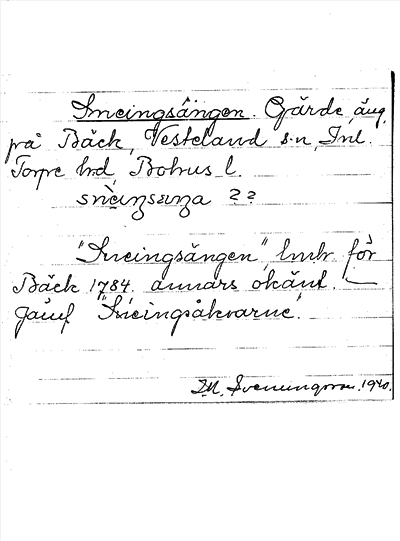 Sneingsängen. Gärde, äng,
på Bäck, Vesteland s:n, Inl.
Torpe hrd, Bohus l.
snèiŋsɛŋa ??
"Sneingsängen", lmtr för
Bäck 1784. annars okänt.
Jämf "Sneingsåkrarne".
D.N. Svenungsson. 1940.